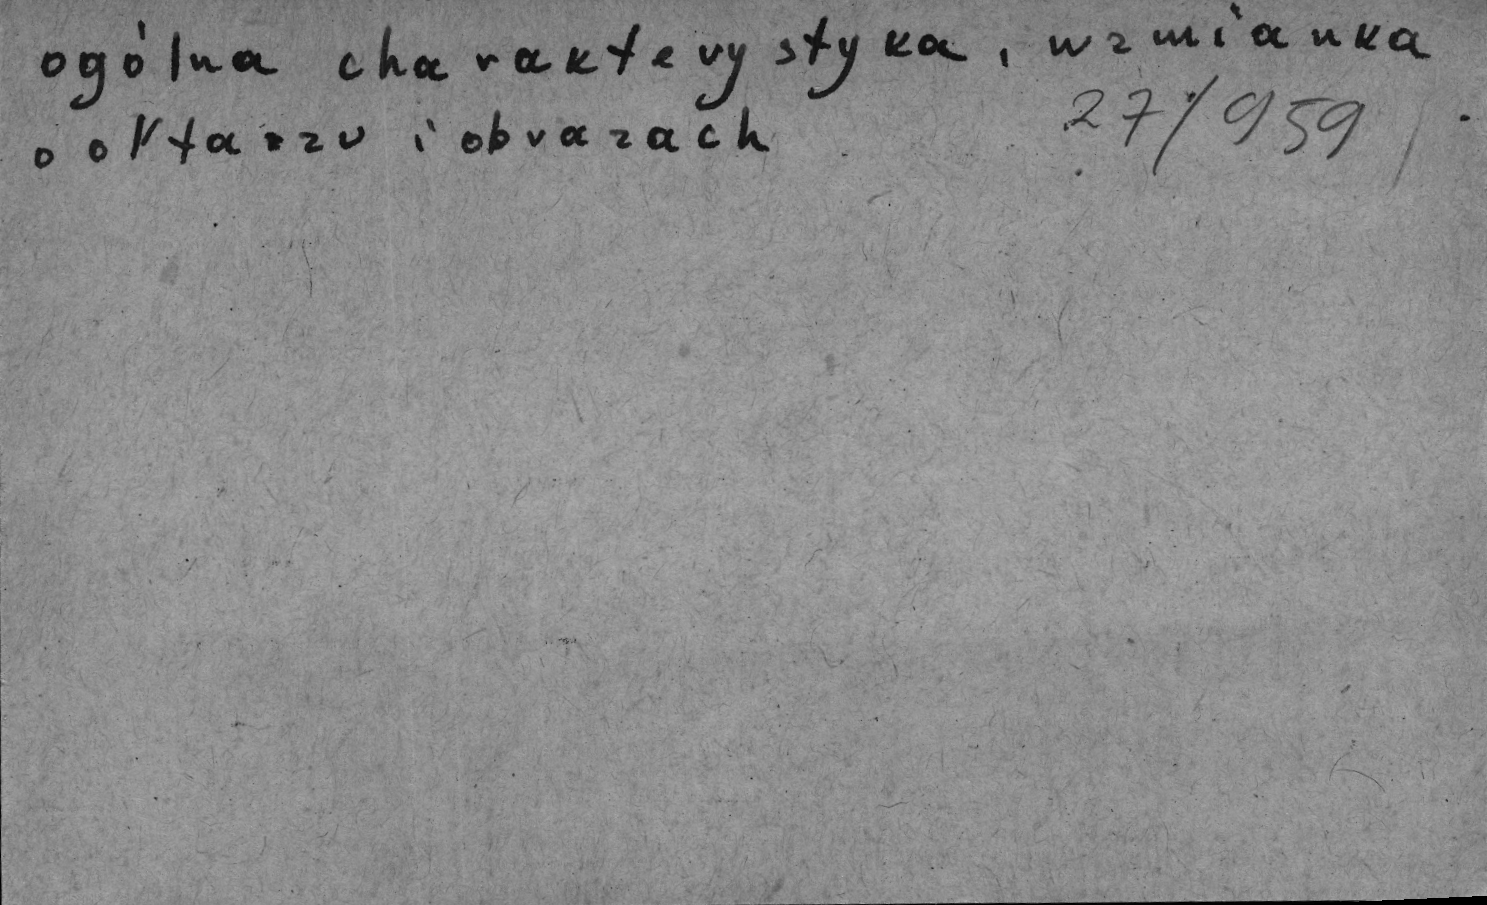 ogólna charakterystyka, wzmianka
o ołtarzu i obrazach
27/959